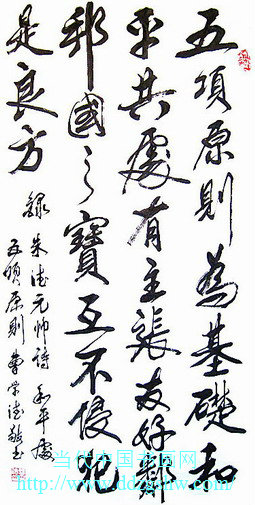 五項原則為基礎和
平共處有主張友好鄰
邦國之寶互不侵犯
是良方
錄朱德元帥詩和平處
五項原則
当代中国书画网
http://www.ddzgshw.com